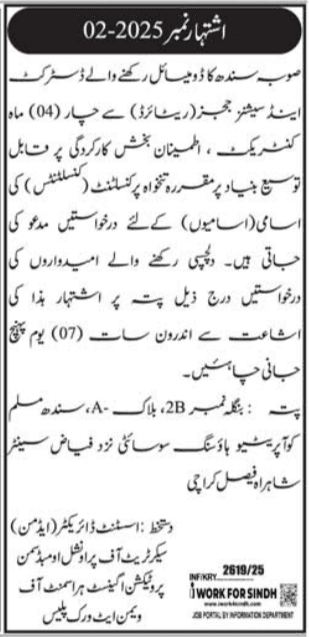 اشتہار نمبر 2025-02
صوبہ سندھ کا ڈومیسائل رکھنے والے ڈسٹرکٹ
اینڈ سیشنز ججز (ریٹائرڈ) سے چار (04) ماہ
کنٹریکٹ، اطمینان بخش کارکردگی پر قابل
توسیع بنیاد پر مقررہ تنخواہ پر کنسلٹنٹ (کنسلٹنٹس) کی
اسامی (اسامیوں) کے لئے درخواستیں مدعو کی
جاتی ہیں۔ دلچسپی رکھنے والے امیدواروں کی
درخواستیں درج ذیل پتہ پر اشتہار ہذا کی
اشاعت سے اندرون سات (07) یوم پہنچ
جانی چاہئیں۔
پتہ : بنگلہ نمبر 2B، بلاک -A، سندھ مسلم
کوآپریٹیو ہاؤسنگ سوسائٹی نزد فیاض سینٹر
شاہراہ فیصل کراچی
دستخط: اسسٹنٹ ڈائریکٹر (ایڈمن)
سیکرٹریٹ آف پراونشل اومبڈسمن
پروٹیکشن اگینسٹ ہراسمنٹ آف
ویمن ایٹ ورک پلیس
INF/KRY 2619/25
I WORK FOR SINDH
www.iwork4sindh.com
JOB PORTAL BY INFORMATION DEPARTMENT